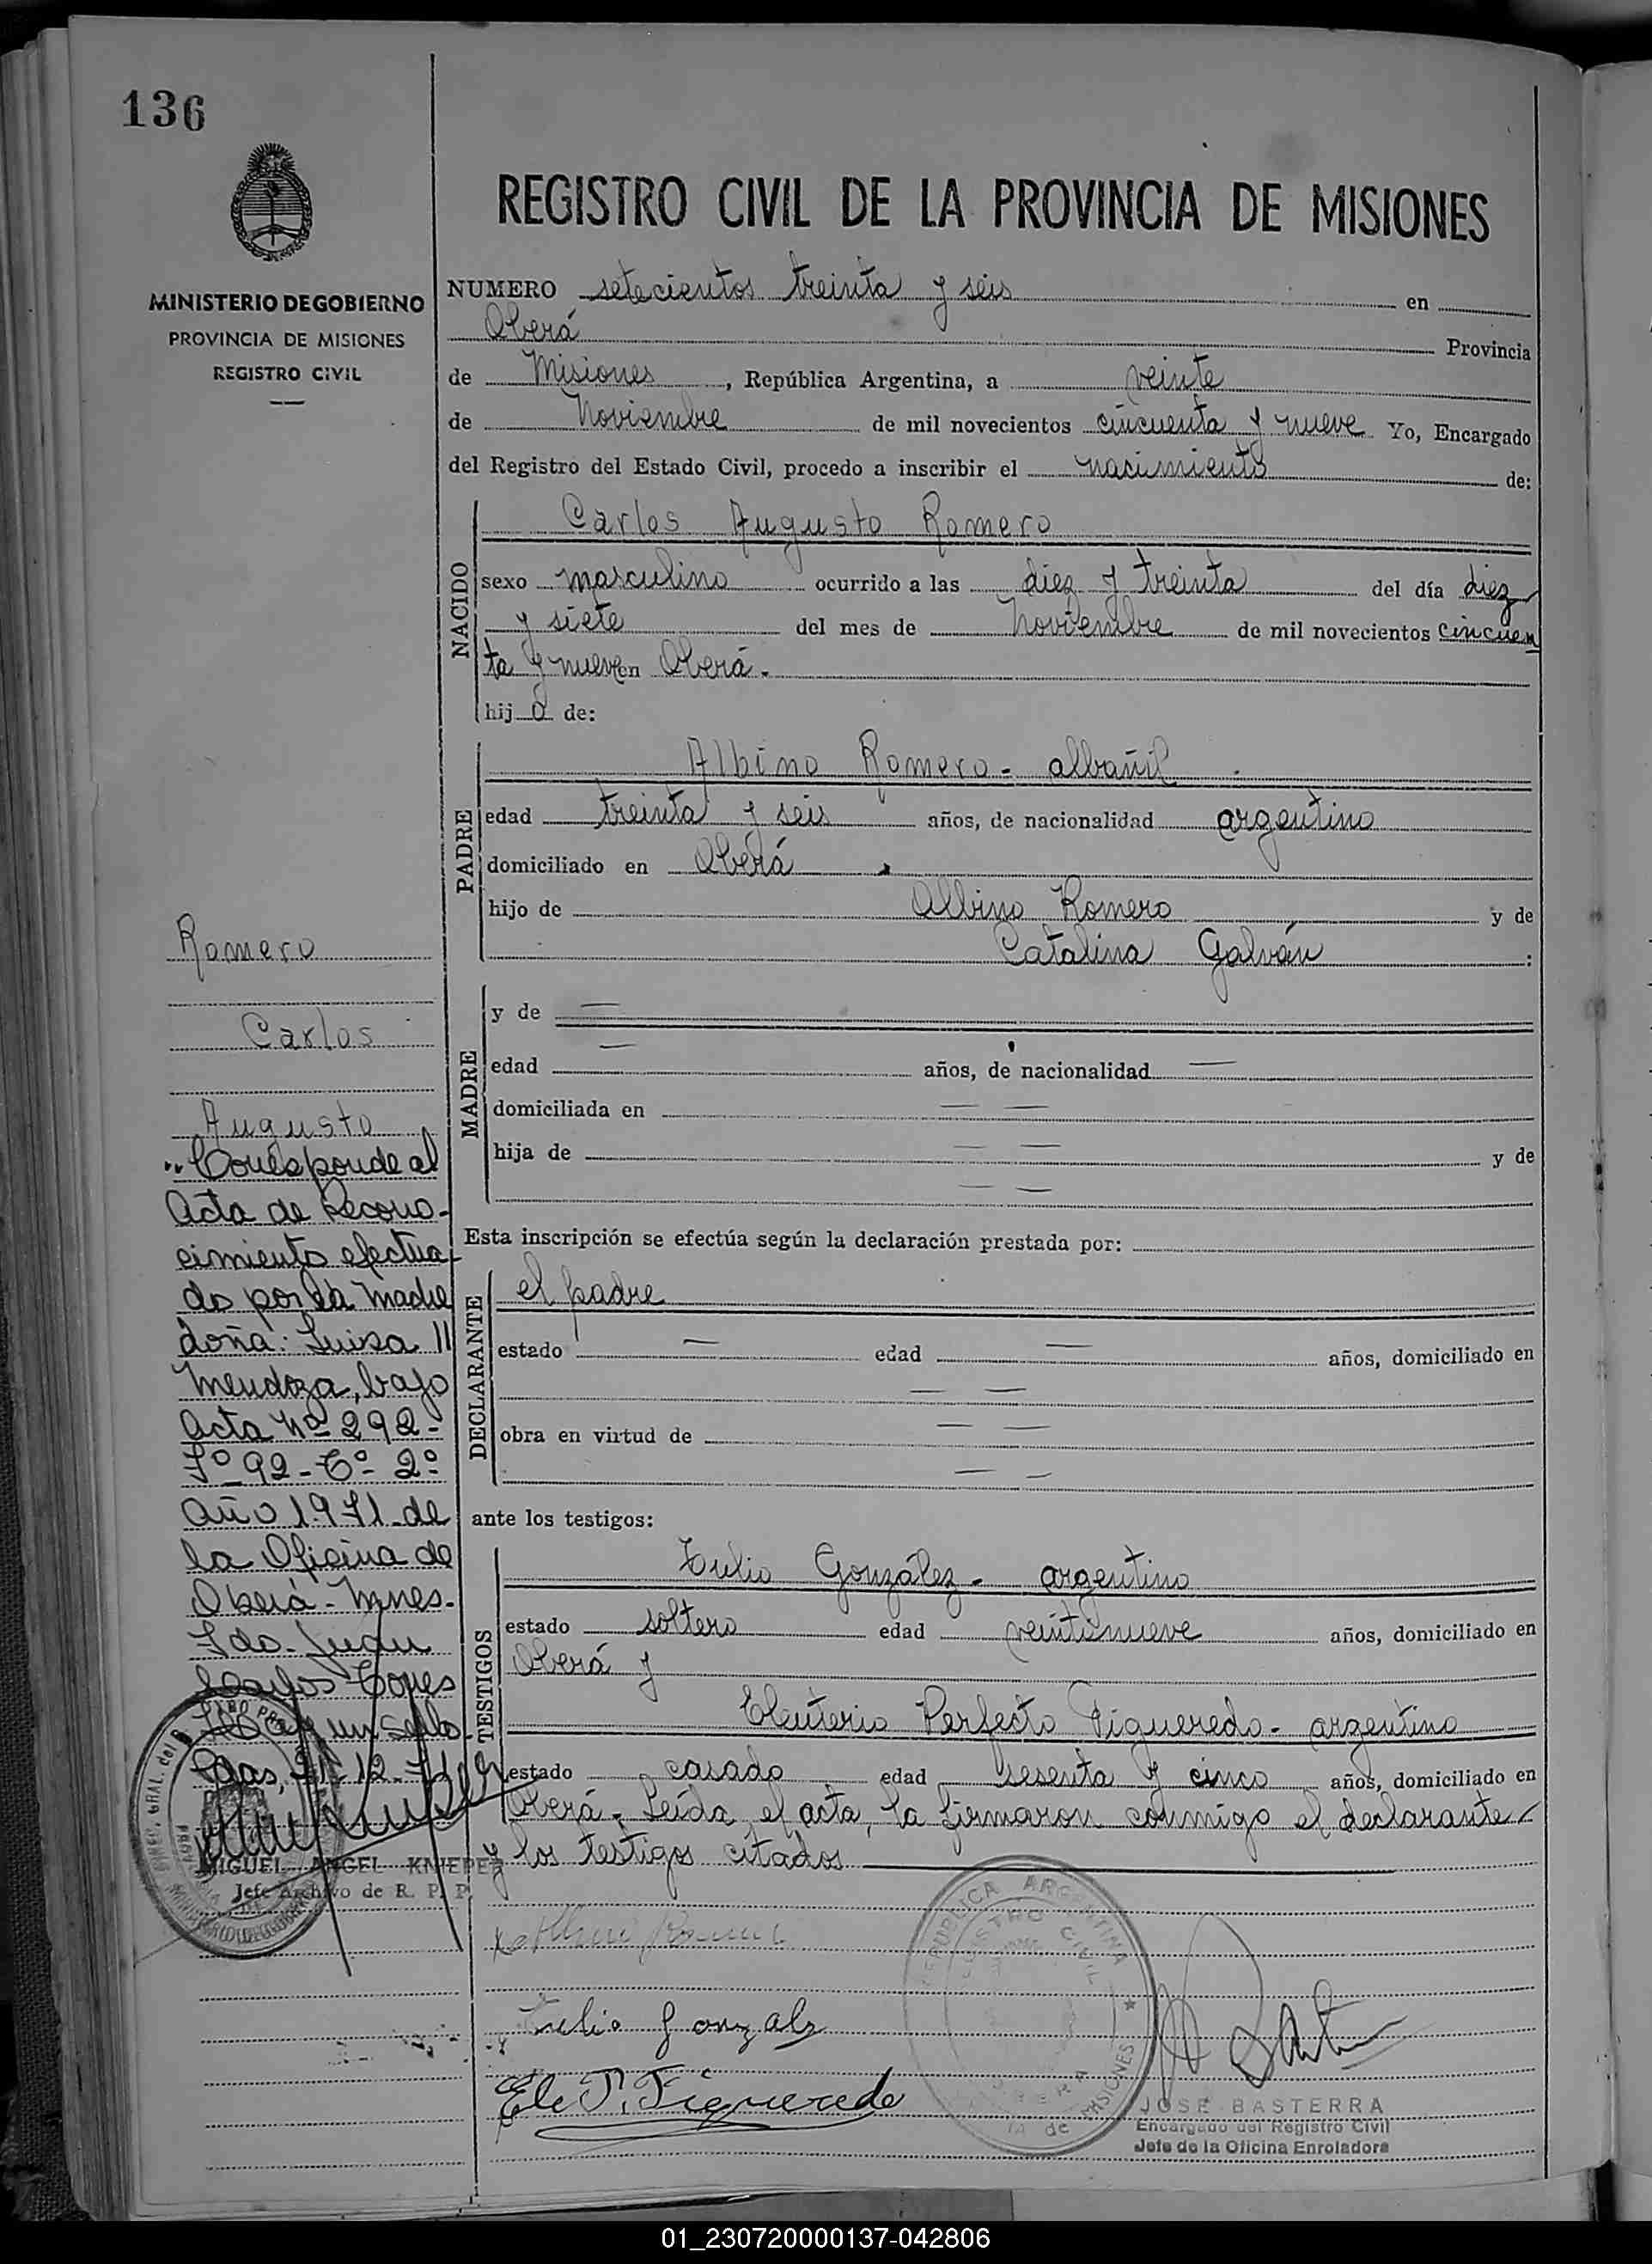 136
REGISTRO CIVIL DE LA PROVINCIA DE MISIONES
MINISTERIO DE GOBIERNO
PROVINCIA DE MISIONES
REGISTRO CIVIL
NUMERO setecientos treinta y seis en
Oberá Provincia
de Misiones, República Argentina, a veinte
de Noviembre de mil novecientos cincuenta y nueve Yo, Encargado
del Registro del Estado Civil, procedo a inscribir el nacimiento de:
NACIDO
Carlos Augusto Romero
sexo masculino ocurrido a las diez y treinta del día diez
y siete del mes de Noviembre de mil novecientos cincuen
ta y nueve en Oberá.
hijo de:
PADRE
Albino Romero - albañil
edad treinta y seis años, de nacionalidad argentino
domiciliado en Oberá
hijo de Albino Romero y de
Catalina Galván :
MADRE
y de —
edad — años, de nacionalidad —
domiciliada en — —
hija de — — y de
— —
Esta inscripción se efectúa según la declaración prestada por:
DECLARANTE
el padre
estado — edad — años, domiciliado en
— —
obra en virtud de — —
— —
ante los testigos:
TESTIGOS
Tulio González - argentino
estado soltero edad veintinueve años, domiciliado en
Oberá y
Eleuterio Perfecto Figueredo - argentino
estado casado edad sesenta y cinco años, domiciliado en
Oberá - Leída el acta, la firmaron conmigo el declarante
y los testigos citados
Romero
Carlos
Augusto
"Corresponde al
Acta de Recono-
cimiento efectua-
do por la madre
doña: Luisa
Mendoza, bajo
Acta Nº 292-
Fº 92 - Tº 2º
Año 1971 de
la Oficina de
Oberá - Mnes.
Fdo. Juan
Carlos Torres
Hay un sello
Pdas, 12
MIGUEL ANGEL KNIEPER
Jefe Archivo de R. P. P.
Tulio Gonzalz
Ele P. Figueredo
REPUBLICA ARGENTINA
REGISTRO CIVIL
OBERA
MISIONES
JOSE BASTERRA
Encargado del Registro Civil
Jefe de la Oficina Enroladora
01_230720000137-042806